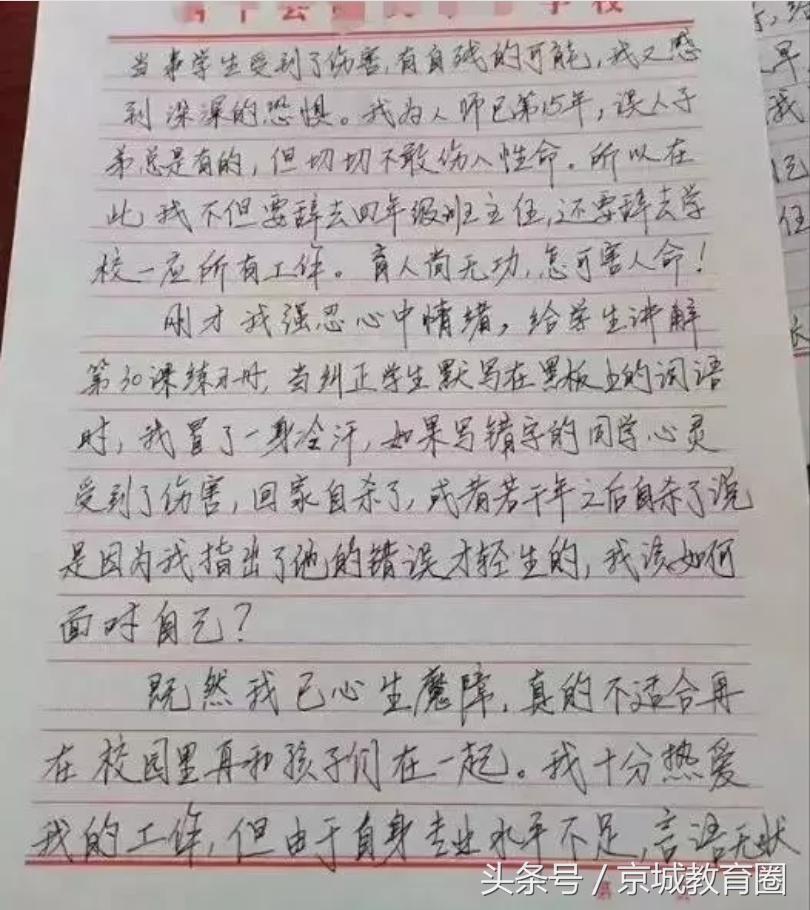 学校
当本学生受到了伤害,有自残的可能,我又感
到深深的恐惧。我为人师已第15年,误人子
弟总是有的,但切切不敢伤人性命。所以在
此,我不但要辞去四年级班主任,还要辞去学
校一应所有工作。育人尚无功,怎可害人命!
刚才我强忍心中情绪,给学生讲解
第30课练习册,当纠正学生默写在黑板上的词语
时,我冒了一身冷汗,如果写错字的同学心灵
受到了伤害,回家自杀了,或者若干年之后自杀了说
是因为我指出了他的错误才轻生的,我该如何
面对自己?
既然我已心生魔障,真的不适合再
在校园里再和孩子们在一起。我十分热爱
我的工作,但由于自身专业水平不足,言语无状
第
头条号/京城教育圈